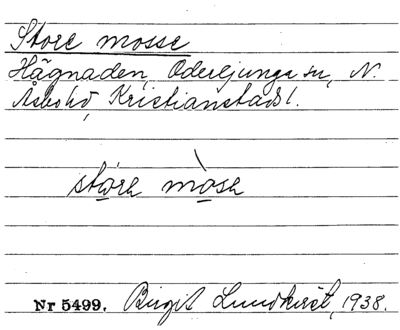 Store mosse
Hägnaden, Oderljunga sn, N.
Åsbohd, Kristianstads l.
stórk mòsk
Nr 5499. Birgit Lundkvist, 1938.